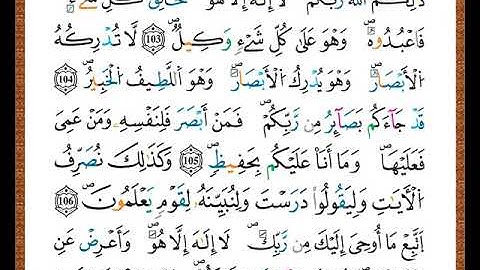 ذَٰلِكُمُ اللَّهُ رَبُّكُمْ ۖ لَا إِلَٰهَ إِلَّا هُوَ ۖ خَالِقُ كُلِّ شَيْءٍ
فَاعْبُدُوهُ ۖ وَهُوَ عَلَىٰ كُلِّ شَيْءٍ وَكِيلٌ ۖ 103 لَّا تُدْرِكُهُ
الْأَبْصَارُ ۖ وَهُوَ يُدْرِكُ الْأَبْصَارَ ۖ وَهُوَ اللَّطِيفُ الْخَبِيرُ ۖ 104
قَدْ جَاءَكُم بَصَائِرُ مِن رَّبِّكُمْ ۖ فَمَنْ أَبْصَرَ فَلِنَفْسِهِ ۖ وَمَنْ عَمِيَ
فَعَلَيْهَا ۖ وَمَا أَنَا عَلَيْكُم بِحَفِيظٍ ۖ 105 وَكَذَٰلِكَ نُصَرِّفُ
الْآيَاتِ وَلِيَقُولُوا دَرَسْتَ وَلِنُبَيِّنَهُ لِقَوْمٍ يَعْلَمُونَ ۖ 106
اتَّبِعْ مَا أُوحِيَ إِلَيْكَ مِن رَّبِّكَ ۖ لَا إِلَٰهَ إِلَّا هُوَ ۖ وَأَعْرِضْ عَنِ